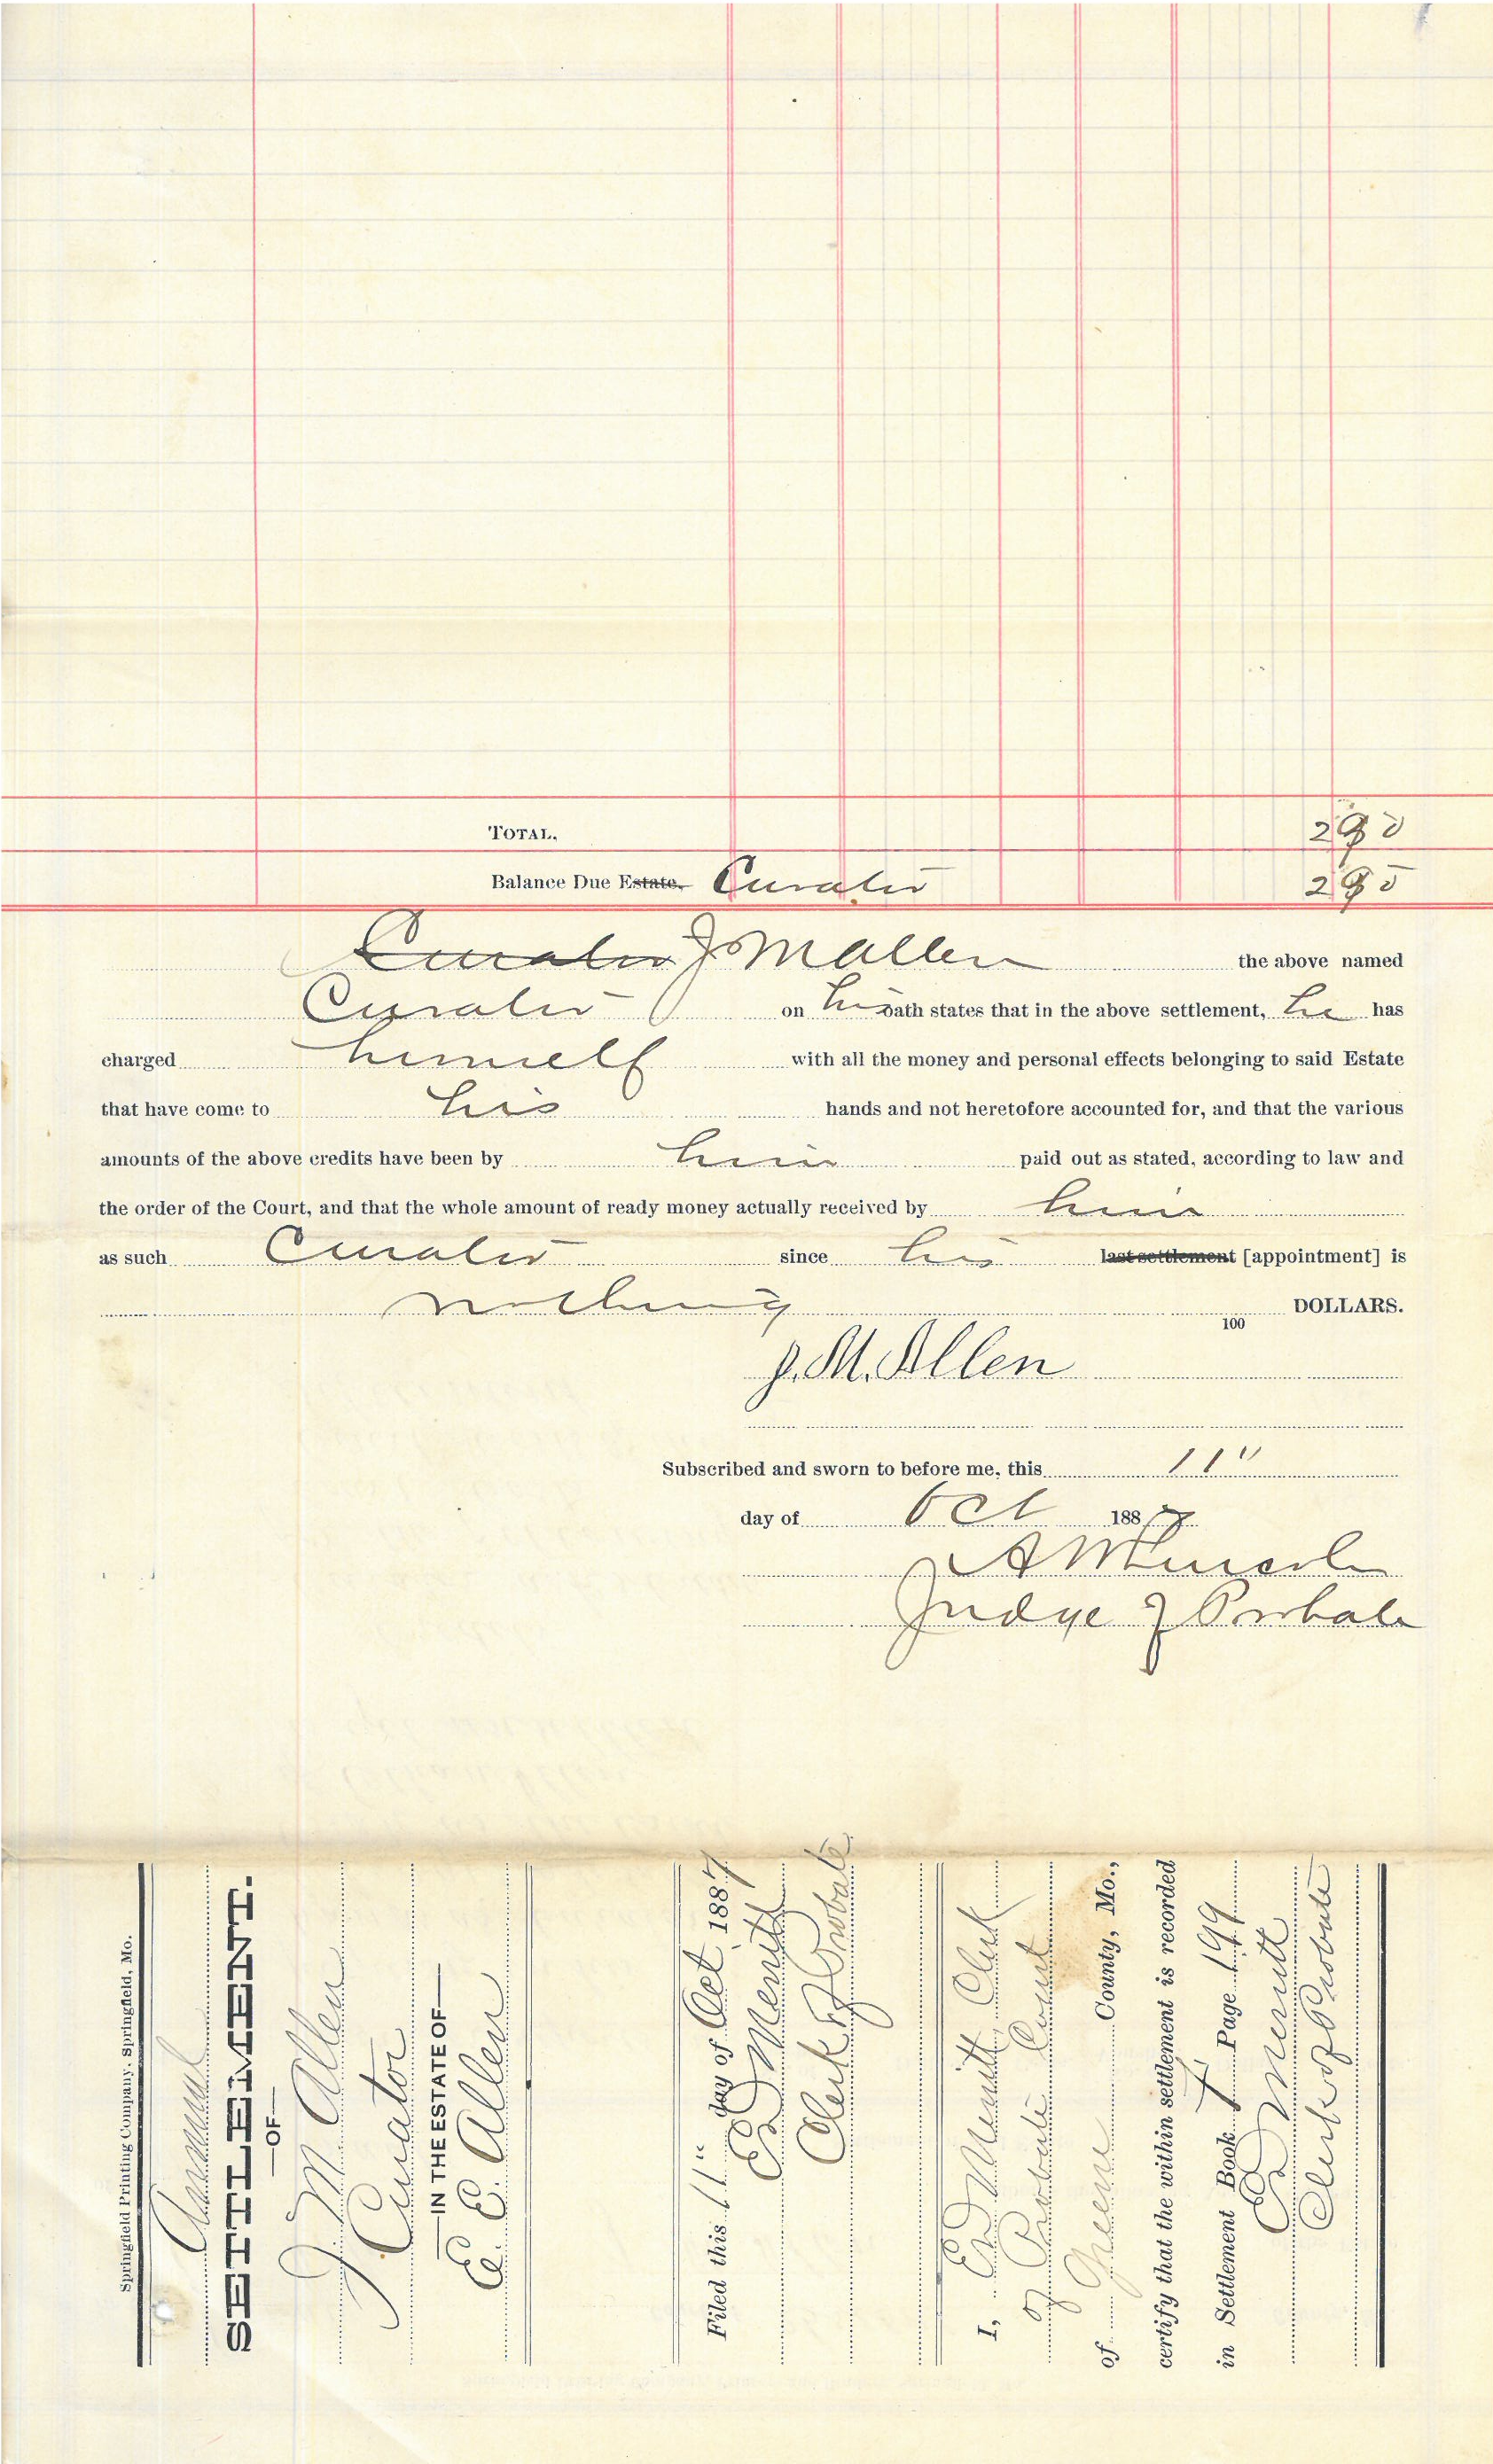 TOTAL,
Balance Due Estate. Curator
Curator J M Allen the above named
Curator on his oath states that in the above settlement, he has
charged himself with all the money and personal effects belonging to said Estate
that have come to his hands and not heretofore accounted for, and that the various
amounts of the above credits have been by him paid out as stated, according to law and
the order of the Court, and that the whole amount of ready money actually received by him
as such Curator since his last settlement [appointment] is
nothing DOLLARS.
100
J. M. Allen
Subscribed and sworn to before me, this 11"
day of Oct 1887
A W Lincoln
Judge of Probate
Springfield Printing Company, Springfield, Mo.
Annual
SETTLEMENT.
—OF—
J M Allen
Curator
—IN THE ESTATE OF—
E. E. Allen
Filed this 11" day of Oct 1887
Ed Merritt
Clerk of Probate
I, Ed Merritt Clerk
of Probate Court
of Green County, Mo.,
certify that the within settlement is recorded
in Settlement Book Page 199
Ed Merritt
Clerk of Probate